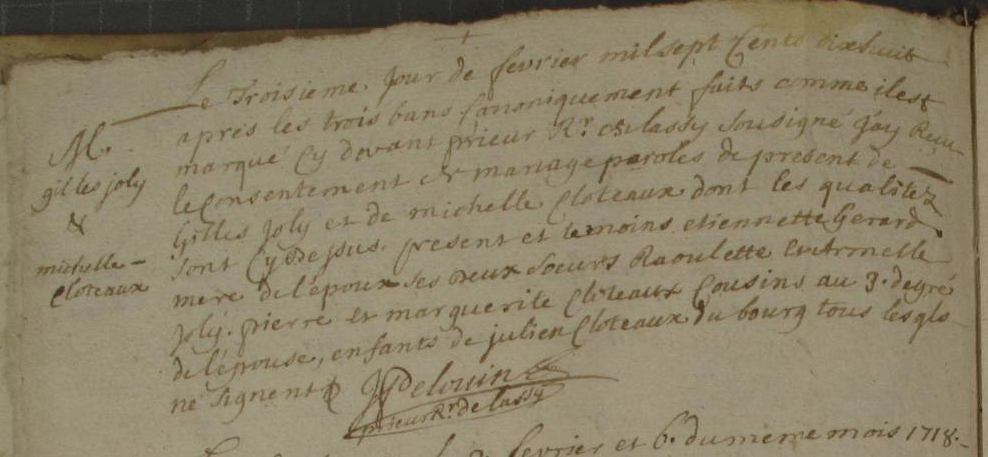 M.
gilles joly
&
michelle
Cloteaux
Le Troisieme Jour de fevrier mil sept Cents dixhuit
aprés les trois bans Canoniquement faits comme il est
marqué Cy devant prieur Rr. de lassy Sousigné J'ay Recu
le Consentement de mariage paroles de present de
Gilles Joly et de michelle Cloteaux dont les qualitez
sont Cy dessus. present et temoins etiennette Gerard
mere de l'epoux ses deux Soeurs Raoulette et
Joly. pierre et marguerite Cloteaux Cousins au 3. degré
de l'épouse, enfants de julien Cloteaux du bourg tous lesqls
ne signent
prieur Rr. de lassy
fevrier et 6. du meme mois 1718.